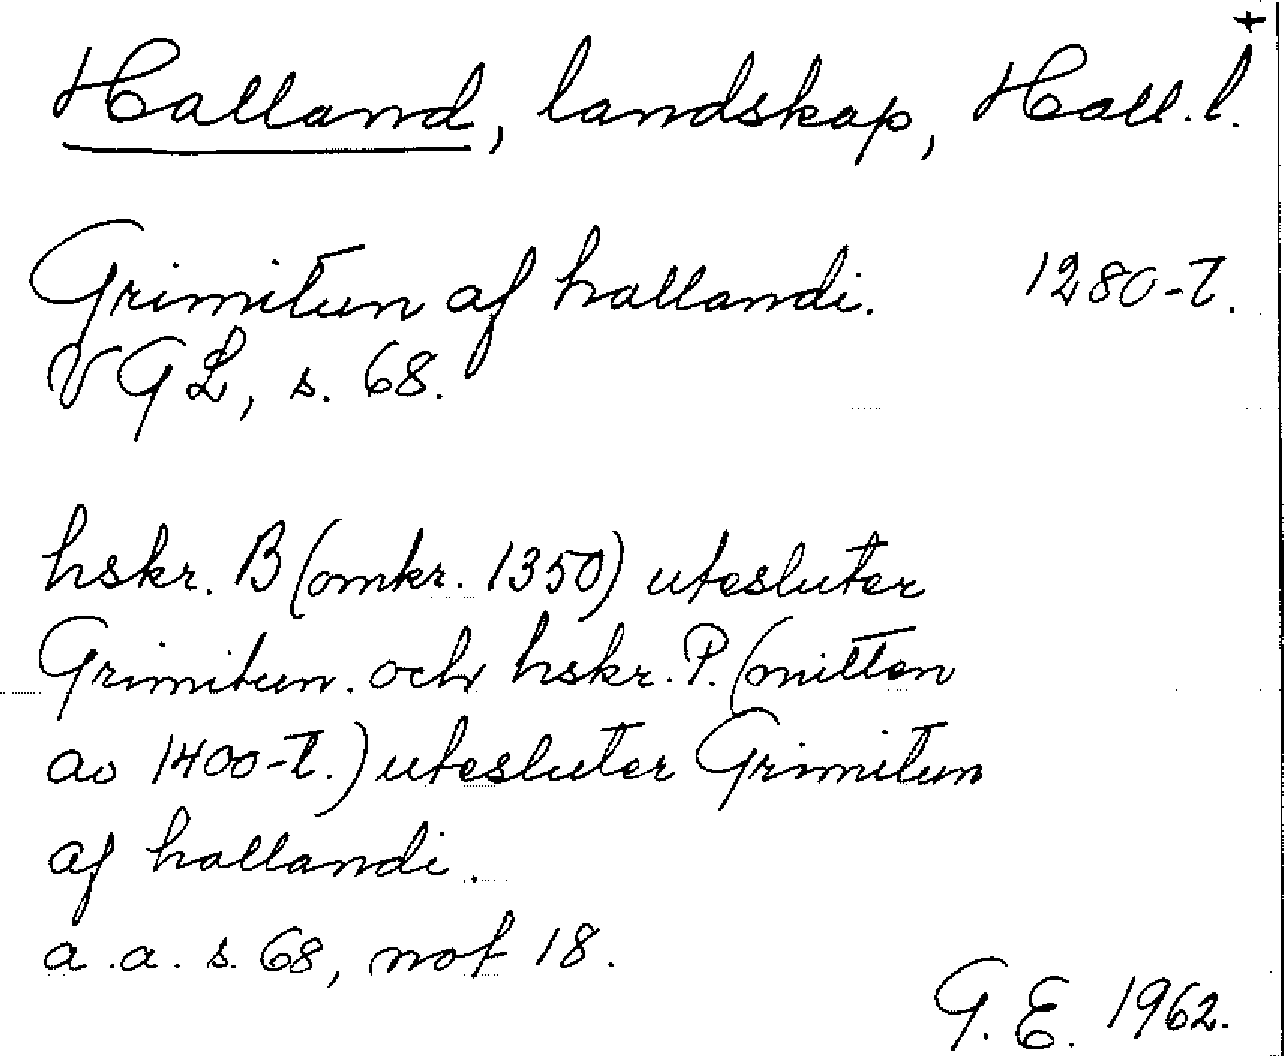 +
Halland, landskap, Hall. l.
Grimitun af hallandi. 1280-t.
VGL, s. 68.
hskr. B (omkr. 1350) utesluter
Grimitun. och hskr. P. (mitten
av 1400-t.) utesluter Grimitun
af hallandi.
a.a. s. 68, not 18.
G. E. 1962.